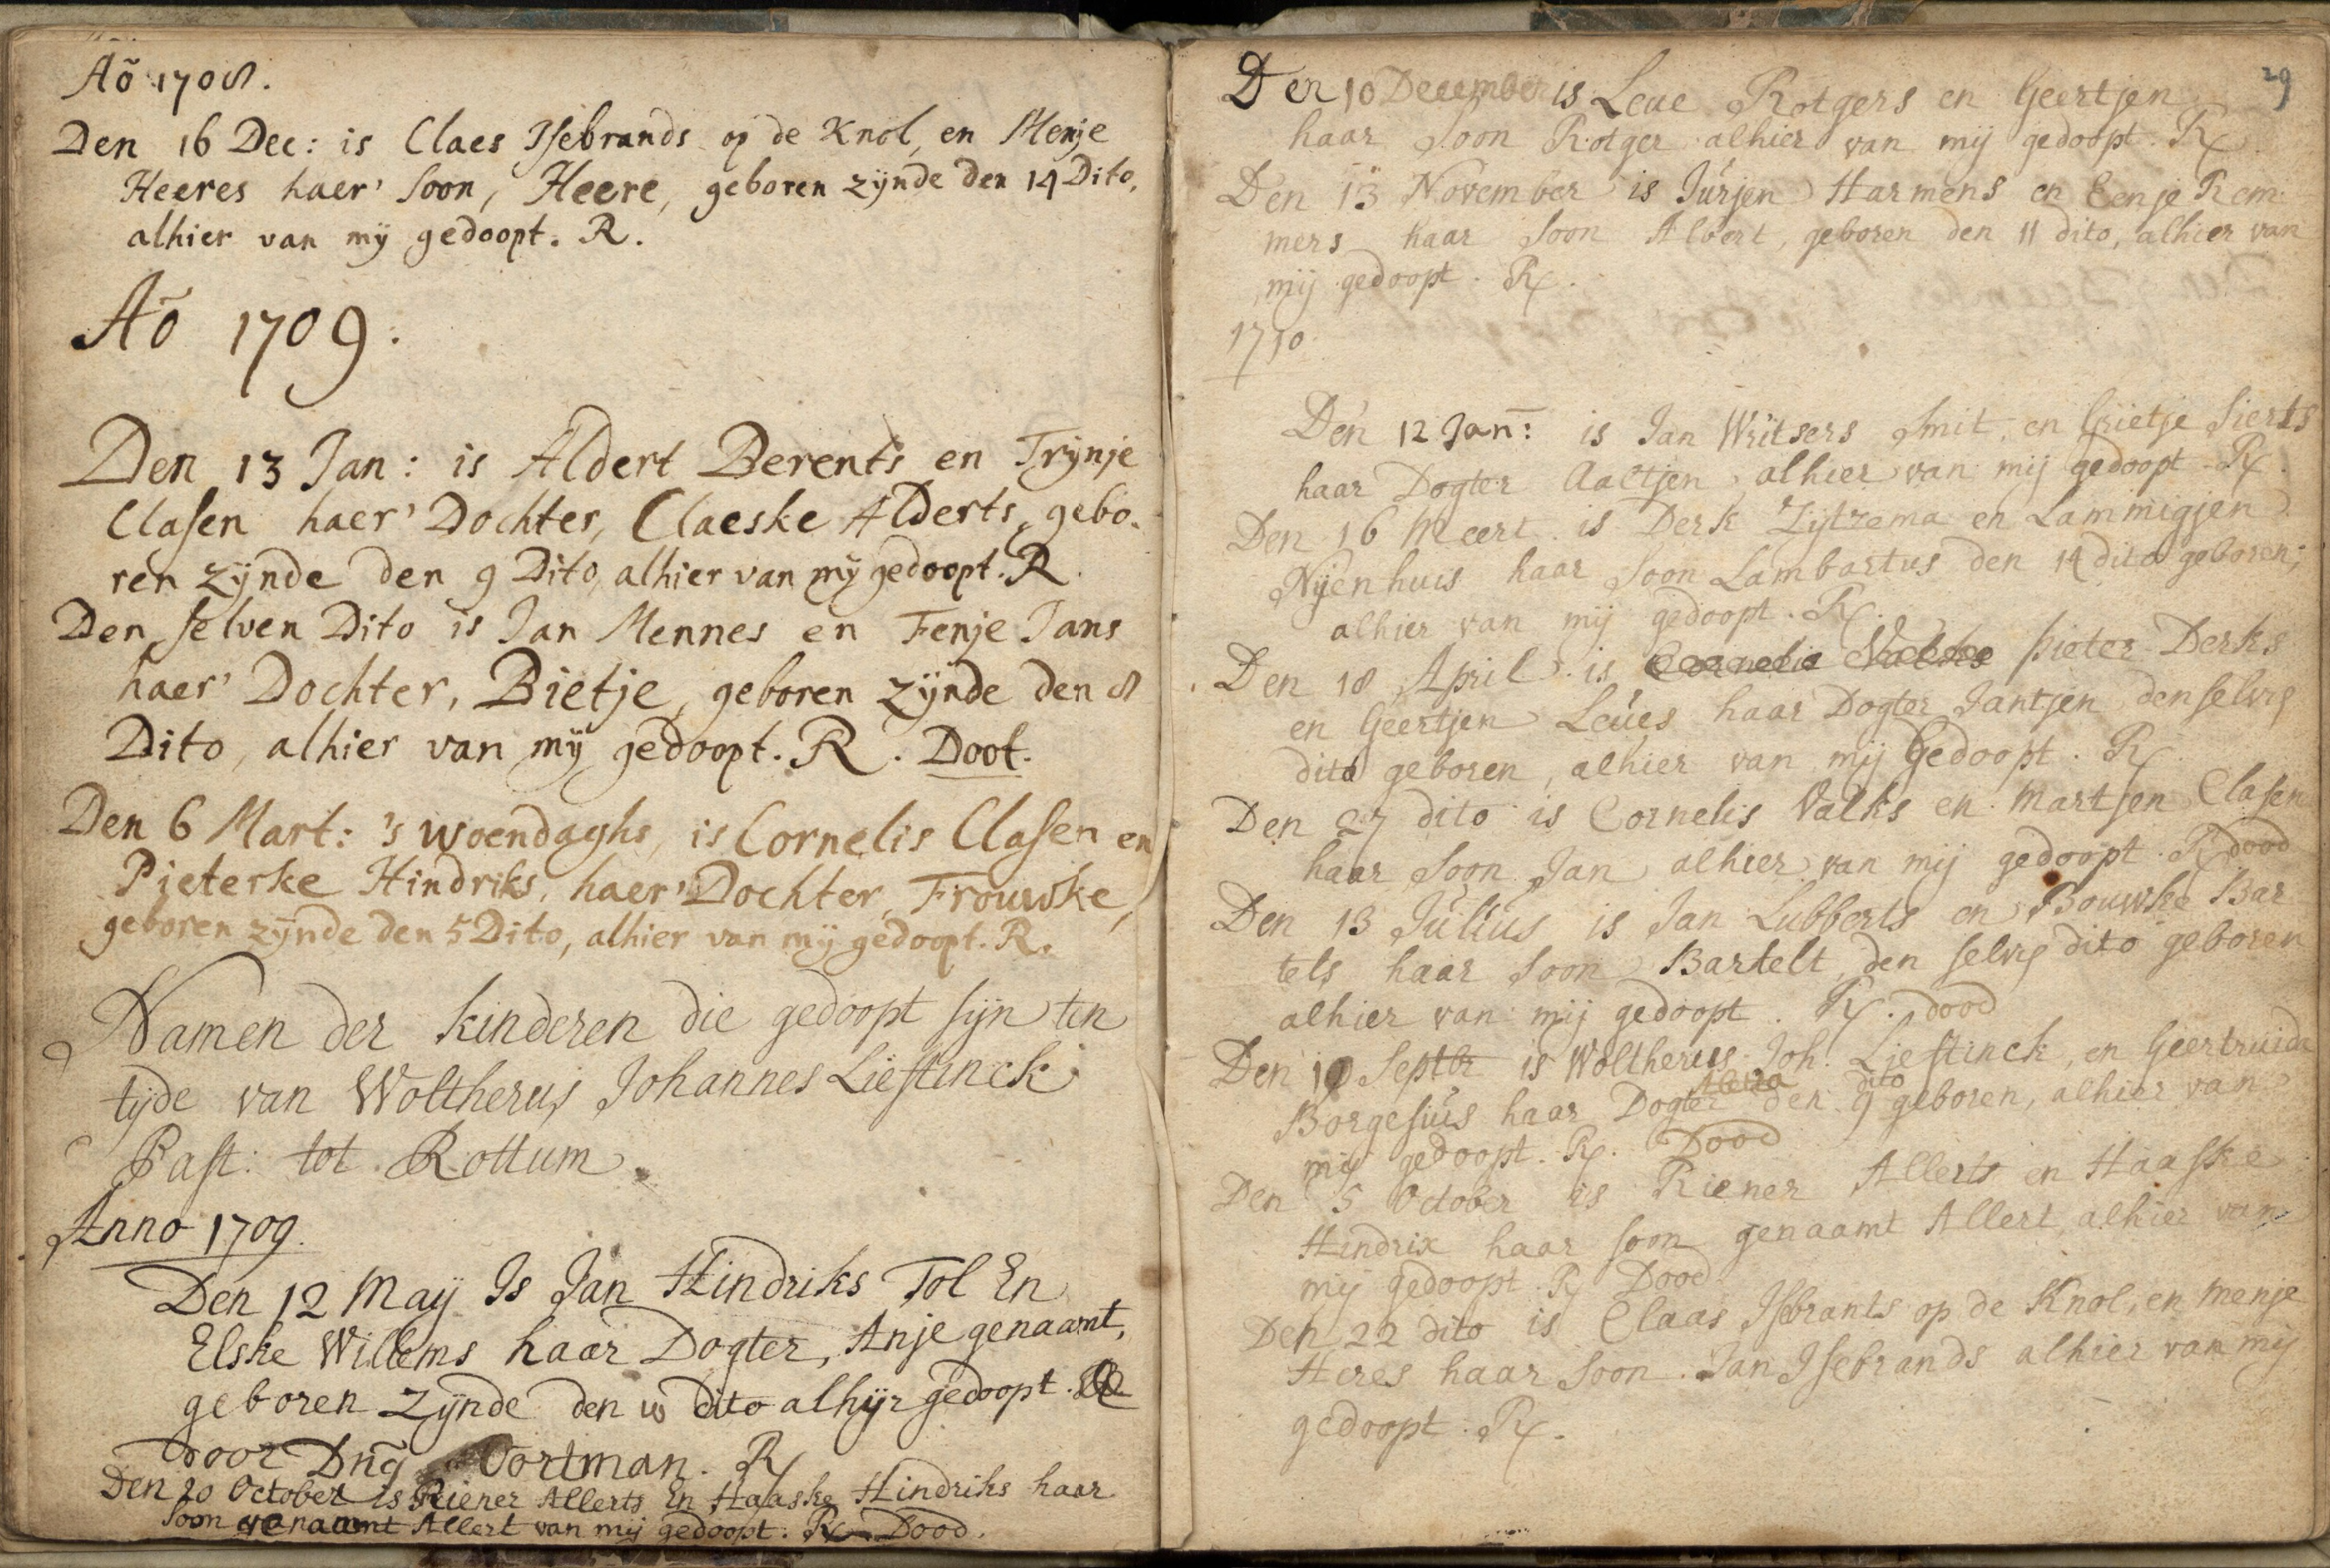 Aõ 1708.
Den 16 Dec: is Claes Isebrands op de Knol, en Menje
Heeres haer' Soon, Heere, geboren zÿnde den 14 Dito,
alhier van mÿ gedoopt. R.
Aõ 1709.
Den 13 Jan: is Aldert Berents en Trÿnje
Clasen haer' Dochter, Claeske Alderts, gebo-
ren zÿnde den 9 Dito, alhier van mÿ gedoopt. R.
Den selven Dito is Jan Mennes en Fenje Jans
haer' Dochter, Bietje, geboren zÿnde den 8
Dito, alhier van mÿ gedoopt. R. Doot.
Den 6 Mart: 's woendaghs, is Cornelis Clasen en
Pieterke Hindriks, haer' Dochter, Frouwke,
geboren zÿnde den 5 Dito, alhier van mÿ gedoopt. R.
Namen der kinderen die gedoopt sÿn ten
tyde van Woltherus Johannes Liestinck
Past: tot Rottum.
Anno 1709.
Den 12 Maÿ Is Jan Hindriks Tol En
Elske Willems haar Dogter, Anje genaamt,
geboren zÿnde den 10 dito alhÿr gedoopt.
door Dnõ Oortman. R
Den 20 October is Riener Allerts En Haaske Hindriks haar
Soon genaamt Allert van mij gedoopt. R Dood.
29
Den 10 December is Leue Rotgers en Geertjen
haar Soon Rotger alhier van mij gedoopt. R
Den 13 November is Jurjen Harmens en Eenje Rem-
mers haar Soon Albert, geboren den 11 dito, alhier van
mij gedoopt. R.
1710
Den 12 Jan: is Jan Writsers Smit, en Grietje Sierts
haar Dogter Aaltjen alhier van mij gedoopt R.
Den 16 Meert is Derk Zijtzema en Lammigjen
Nijenhuis haar Soon Lambartus den 14 dito geboren,
alhier van mij gedoopt. R.
Den 18 April is Cornelis Valks Pieter Derks
en Geertjen Leües haar Dogter Jantjen denselven
dito geboren, alhier van mij Gedoopt. R
Den 27 dito is Cornelis Valks en Martjen Clasen
haar Soon Jan alhier van mij gedoopt. R dood
Den 13 Julius is Jan Lubberts en Bouwke Bar
tels haar Soon Bartelt, den selven dito geboren
alhier van mij gedoopt. R. dood
Den 10 Septbr is Woltherus Joh. Liestinck, en Geertruida
Borgesiüs haar Dogter den 9 dito geboren, alhier van
mij gedoopt. R. Dood
Den 5 October is Riener Allerts en Haaske
Hindrix haar soon genaamt Allert, alhier van
mij gedoopt. R Dood
Den 22 dito is Claas Isebrants op de Knol, en Menje
Heres haar Soon Jan Isebrands alhier van mij
gedoopt. R.